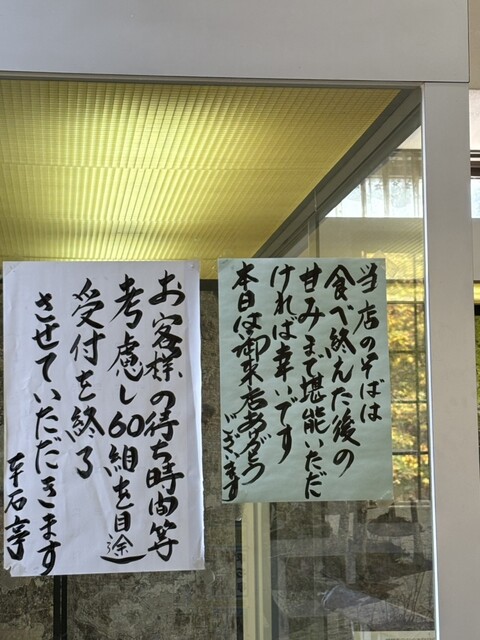 当店のそばは
食べ終えた後の
甘みまで堪能いただ
ければ幸いです
本日は御来店ありがとう
ございます
お客様の待ち時間等
考慮し60組を目途に
受付を終了
させていただきます
平石亭